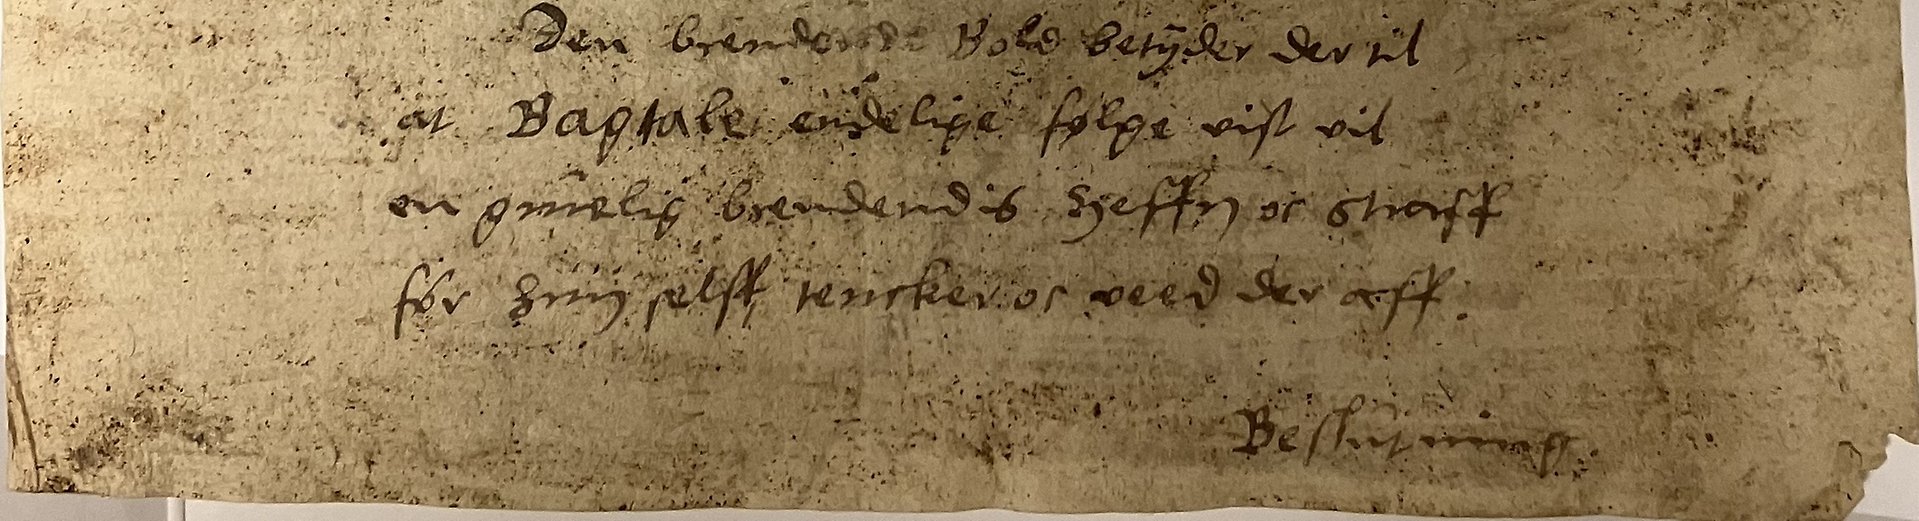 Den brendende Bold betÿder der til
at Bagtale endelige følge vist vil
en gruelig brendendis Heffn oc Straff
for Huer selff tencker oc veed der aff.
Beslutning